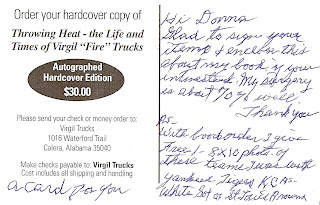 Order your hardcover copy of
Throwing Heat - the Life and
Times of Virgil "Fire" Trucks
Autographed
Hardcover Edition
$30.00
Please send your check or money order to:
Virgil Trucks
1016 Waterford Trail
Calera, Alabama 35040
Make checks payable to: Virgil Trucks
Cost includes all shipping and handling
a Card for you
Hi Donna
Glad to sign your
items & enclose this
about my book if your
interested. My surgery
is about 70% well
Thank you
PS-
With book order I give
free 1- 8x10 photo of
these teams I was with
Yankees- Tigers K.C A's-
White Sox or St Louis Browns